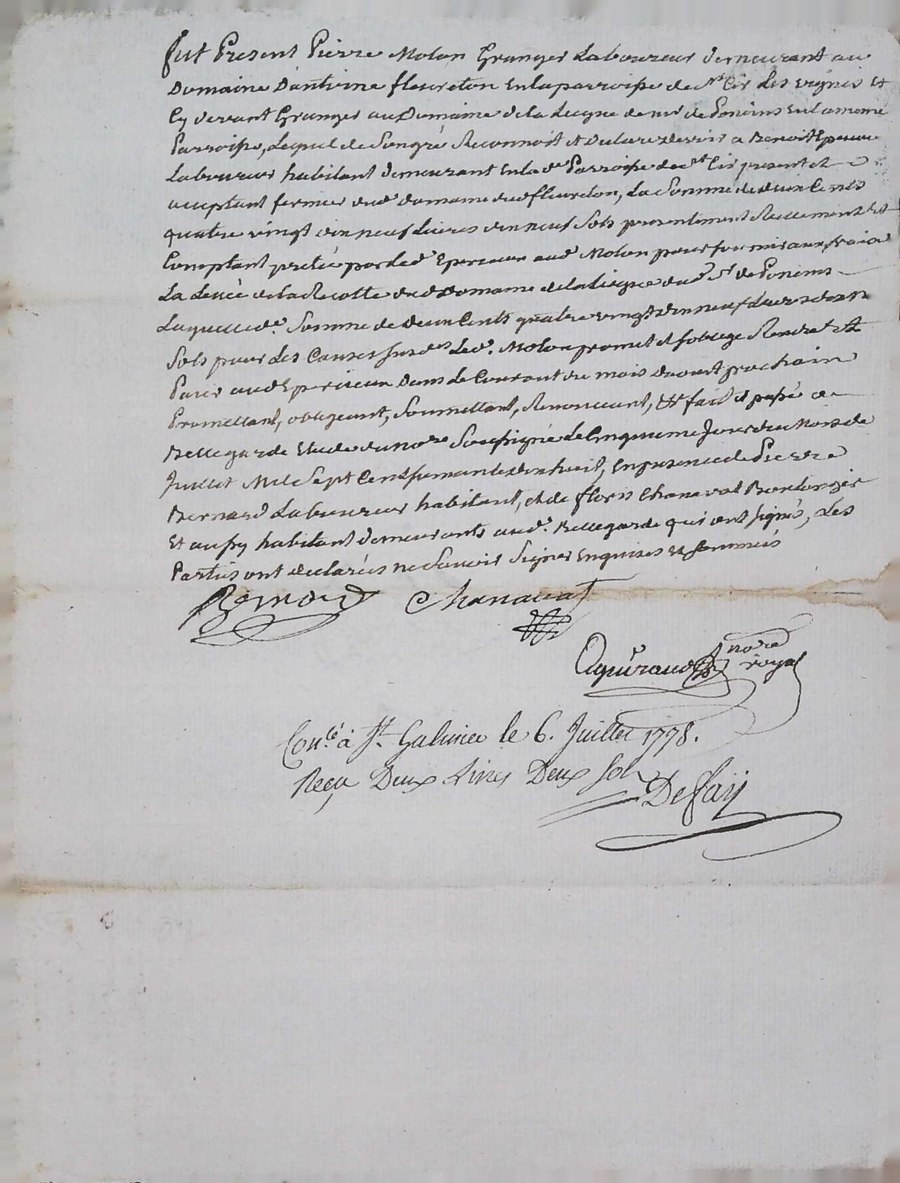 fut Present Pierre Molon Granger Laboureur demeurant au
Domaine D'antoine fleureton En la parroisse de st Cir Les vignes Et
Cy devant Granger au Domaine de la de mr de Ponsins En la meme
Parroisse, Lequel de Son gré Reconnoit et Declare devoir a Benoit
Laboureur habitant demeurant En lade Parroisse de st Cir present et
acceptant fermier dud domaine dud fleureton, La Somme de deux Cents
quatre vingt dix neuf Livres dix neuf Sols presentement Reellement Et
Comptant preté par Led Epercieux aud Molon pour fournir aux fraix a
La Levée de la Recolte dud Domaine de la dud Sr de Ponsins
Laquelle de. Somme de deux Cents quatre vingt dix neuf Livres dix neuf
Sols pour les Causes Susdes Led. Molon promet et s'oblige Rendre et
Payer aud Epercieux Dans le Courant du mois d'aoust prochain
Promettant, obligeant, Soumettant, Renonceant, &c fait et passé a
Bellegarde Etude du nore Soussigné Le Cinquieme Jour du Mois de
Juillet Mil Sept Cent Soixante dix huit, En presence de Pierre
Bernard Laboureur habitant, et de floris Chanavat Boulenger
Et aussy habitant demeurants aud. Bellegarde qui ont signé, Les
Parties ont declarées ne Savoir Signer Enquises et Sommées
Bernard Chanavat
nore
royal
Conlé à St. Galmier le 6. Juillet 1778.
Reçu Deux Livres Deux sols
Defay